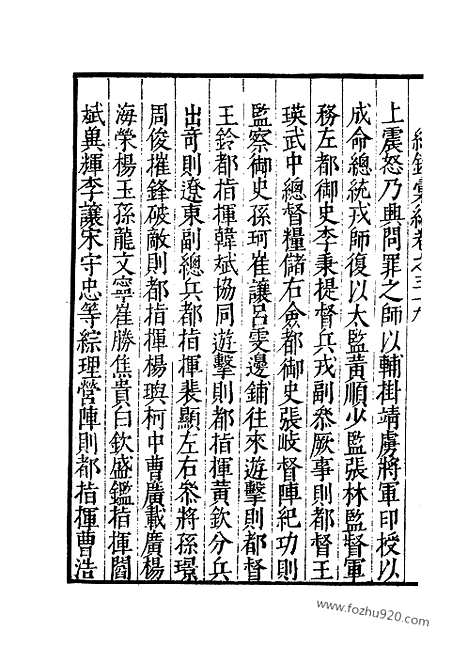 紀錄彙編卷之三十九
上震怒乃興問罪之師以輔掛靖虜將軍印授以
成命總統戎師復以太監黃順少監張林監督軍
務左都御史李秉提督兵戎副叅厥事則都督王
瑛武中總督糧儲右僉都御史張岐督陣紀功則
監察御史孫珂崔讓呂雯邊鋪往來遊擊則都督
王鈴都指揮韓斌協同遊擊則都指揮黃欽分兵
出奇則遼東副總兵都指揮裴顯左右叅將孫璟
周俊摧鋒破敵則都指揮楊璵柯中曹廣載廣楊
海榮楊玉孫龍文寧崔勝焦貴白欽盛鑑指揮閻
斌與輝李讓宋守忠等綜理營陣則都指揮曹浩
www.fozhu920.com